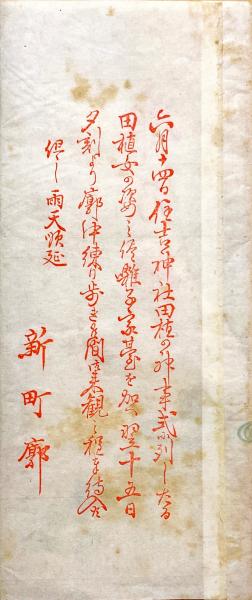 六月十四日住吉神社田植の神事式に列したる
田植女の姿之儘離子家臺を加へ翌十五日
夕刻より廓中練り歩き候間御来観之程奉待入候
但し雨天順延
新町廓